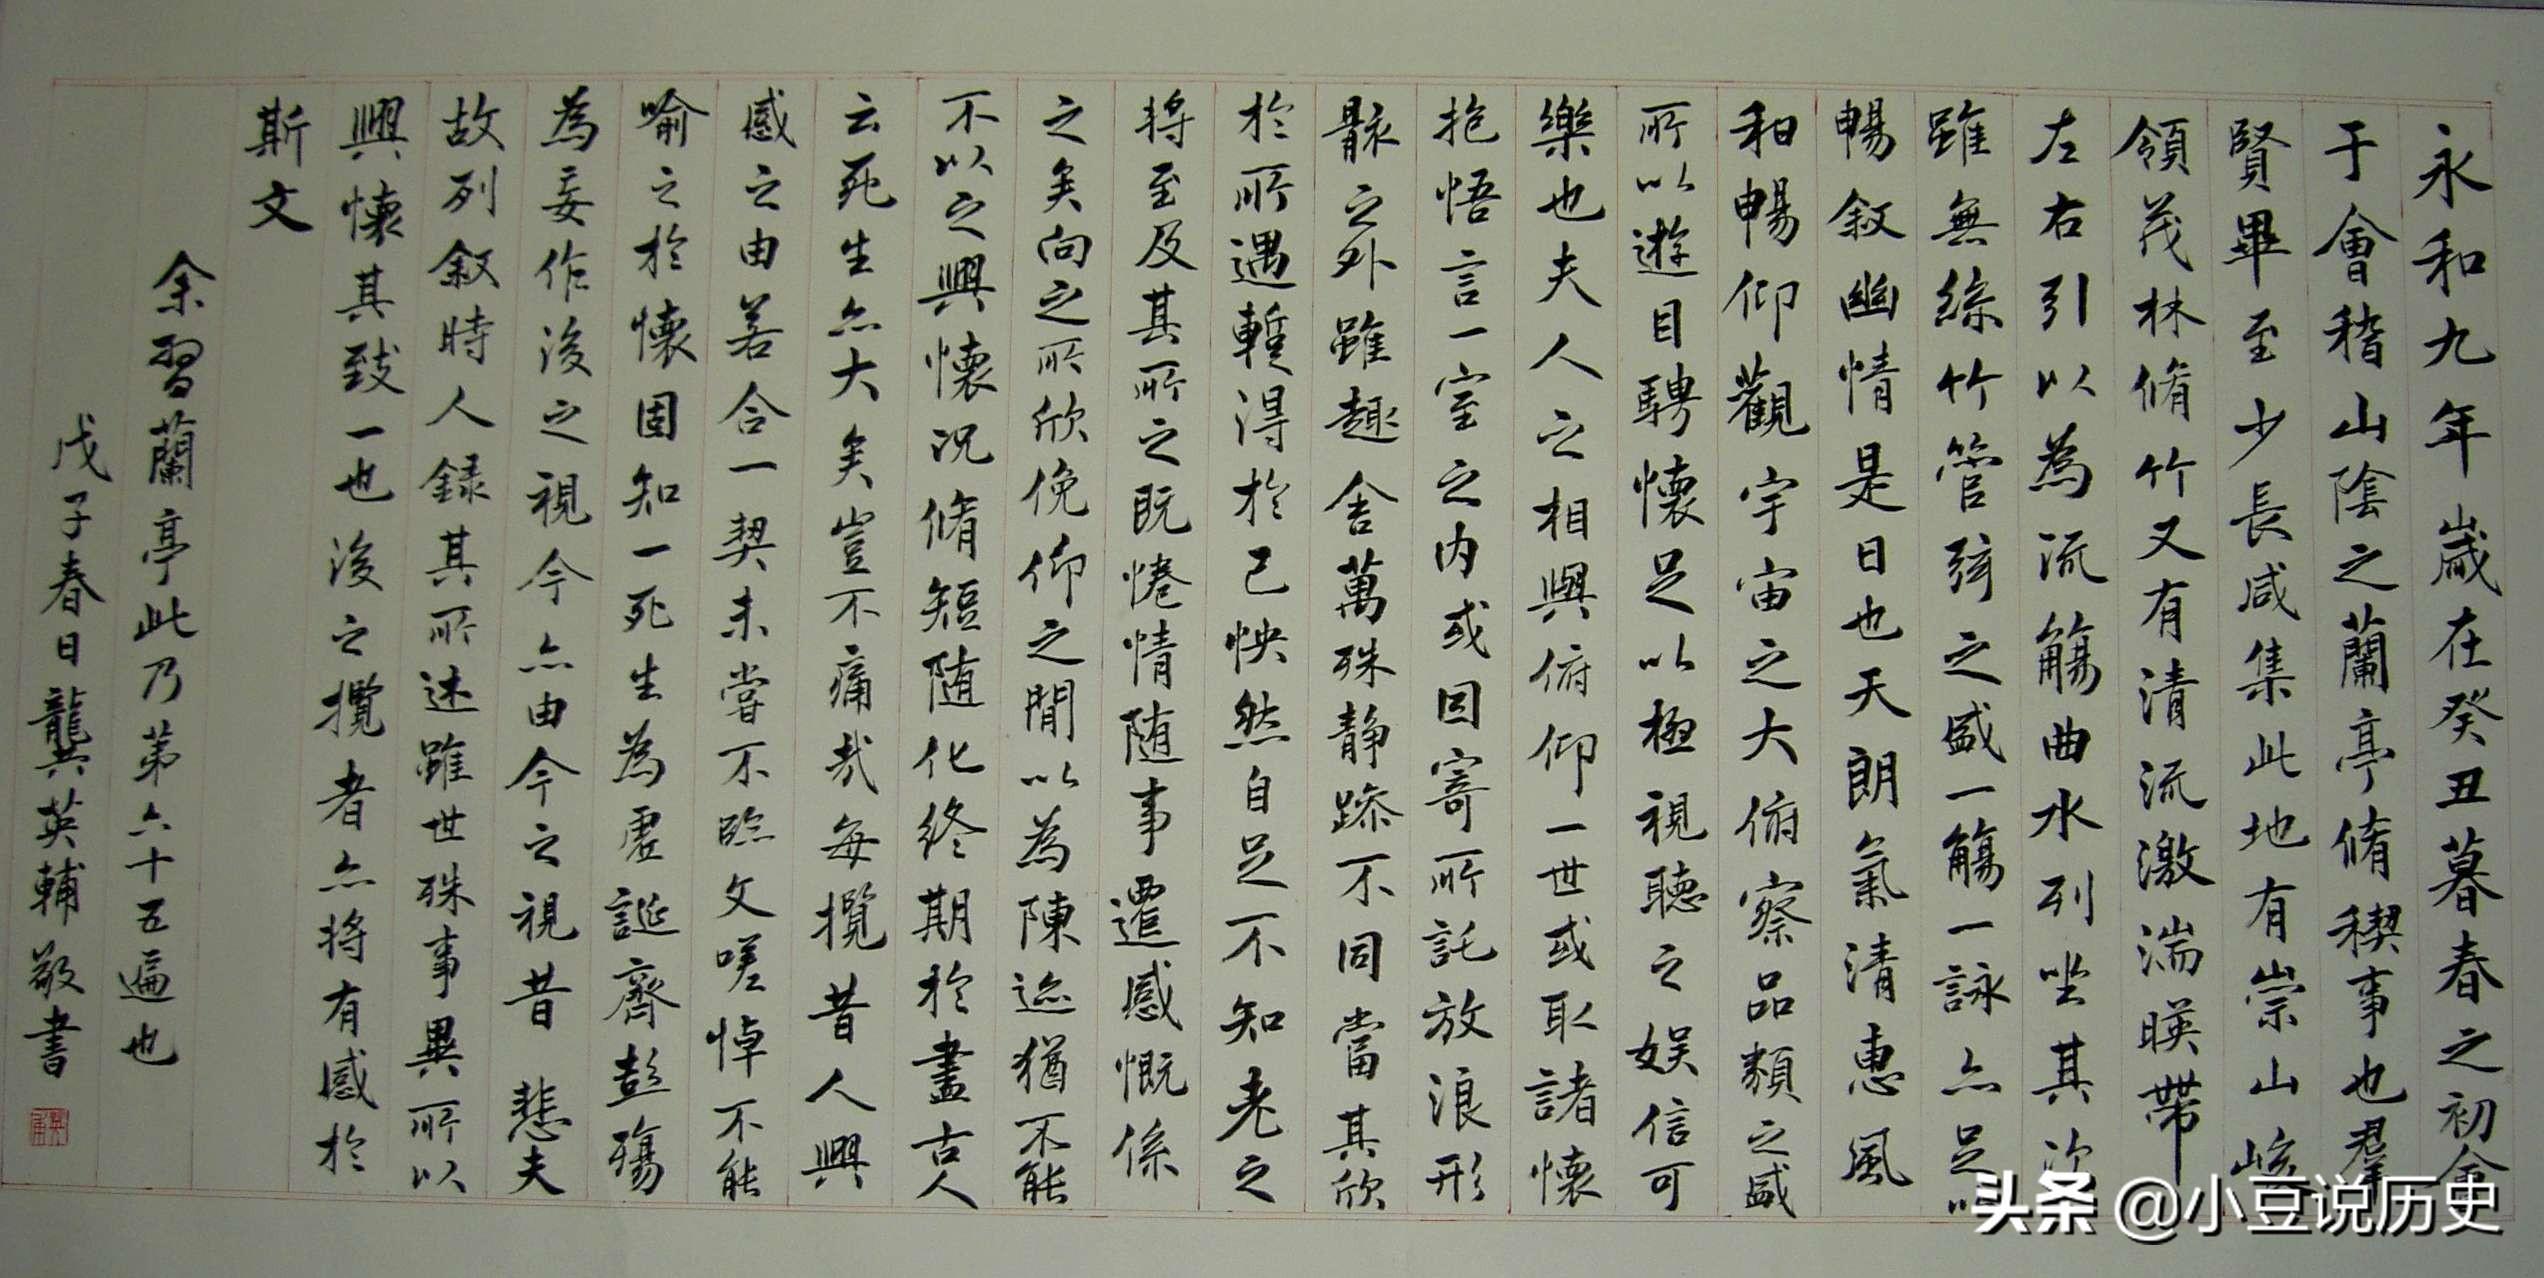 永和九年歲在癸丑暮春之初會
于會稽山陰之蘭亭脩稧事也羣
賢畢至少長咸集此地有崇山峻
領茂林脩竹又有清流激湍暎帶
左右引以為流觴曲水列坐其次
雖無絲竹管弦之盛一觴一詠亦足以
暢叙幽情是日也天朗氣清惠風
和暢仰觀宇宙之大俯察品類之盛
所以遊目騁懷足以極視聽之娛信可
樂也夫人之相與俯仰一世或取諸懷
抱悟言一室之內或因寄所託放浪形
骸之外雖趣舍萬殊静躁不同當其欣
於所遇暫得於己怏然自足不知老之
将至及其所之既惓情随事遷感慨係
之矣向之所欣俛仰之閒以為陳迹猶不能
不以之興懷況脩短随化終期於盡古人
云死生亦大矣豈不痛哉每攬昔人興
感之由若合一契未嘗不臨文嗟悼不能
喻之於懷固知一死生為虛誕齊彭殤
為妄作後之視今亦由今之視昔 悲夫
故列叙時人録其所述雖世殊事異所以
興懷其致一也後之攬者亦将有感於
斯文
余習蘭亭此乃第六十五遍也
戊子春日龔英輔敬書
英輔
头条 @小豆说历史